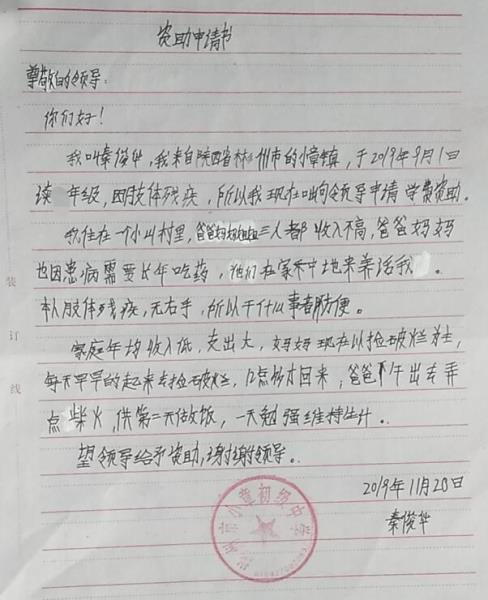 资助申请书
尊敬的领导：
你们好！
我叫秦俊华，我来自陕西省林州市的小章镇，于2019年9月1日
读 年级，因肢体残疾，所以我现在叫向领导申请学费资助。
我住在一个小山村里，爸爸妈妈姐姐三人都收入不高，爸爸妈妈
也因患病需要长年吃药，他们在家种地来养活我。
本人肢体残疾，无右手，所以干什么事都不方便。
家庭年均收入低，支出大，妈妈现在以捡破烂为生，
每天早早的起来去捡破烂，12点多才回来，爸爸下午出去弄
点柴火，供第二天做饭，一天勉强维持生计。
望领导给予资助，谢谢领导。
2019年11月28日
秦俊华
州市小章初级中学
装
订
线